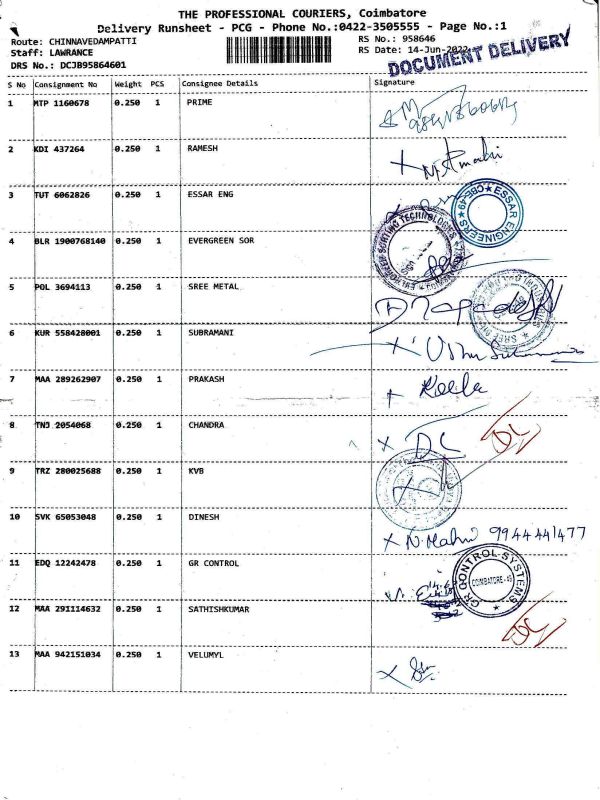 THE PROFESSIONAL COURIERS, Coimbatore
Delivery Runsheet - PCG - Phone No.:0422-3505555 - Page No.:1
Route: CHINNAVEDAMPATTI
RS No.: 958646
Staff: LAWRANCE
RS Date: 14-Jun-2022
DRS No.: DCJB95864601
DOCUMENT DELIVERY
S No Consignment No Weight PCS Consignee Details Signature
1 MTP 1160678 0.250 1 PRIME
2 KDI 437264 0.250 1 RAMESH
3 TUT 6062826 0.250 1 ESSAR ENG
ESSAR ENGINEERS CBE-49
4 BLR 1900768140 0.250 1 EVERGREEN SOR
EVERGREEN SORTING TECHNOLOGIES
5 POL 3694113 0.250 1 SREE METAL
6 KUR 558428001 0.250 1 SUBRAMANI
7 MAA 289262907 0.250 1 PRAKASH
8 TNJ 2054068 0.250 1 CHANDRA
DC DC
9 TRZ 280025688 0.250 1 KVB
10 SVK 65053048 0.250 1 DINESH
9944441477
11 EDQ 12242478 0.250 1 GR CONTROL
GR CONTROL SYSTEMS COIMBATORE - 49
12 MAA 291114632 0.250 1 SATHISHKUMAR
DC
13 MAA 942151034 0.250 1 VELUMYL